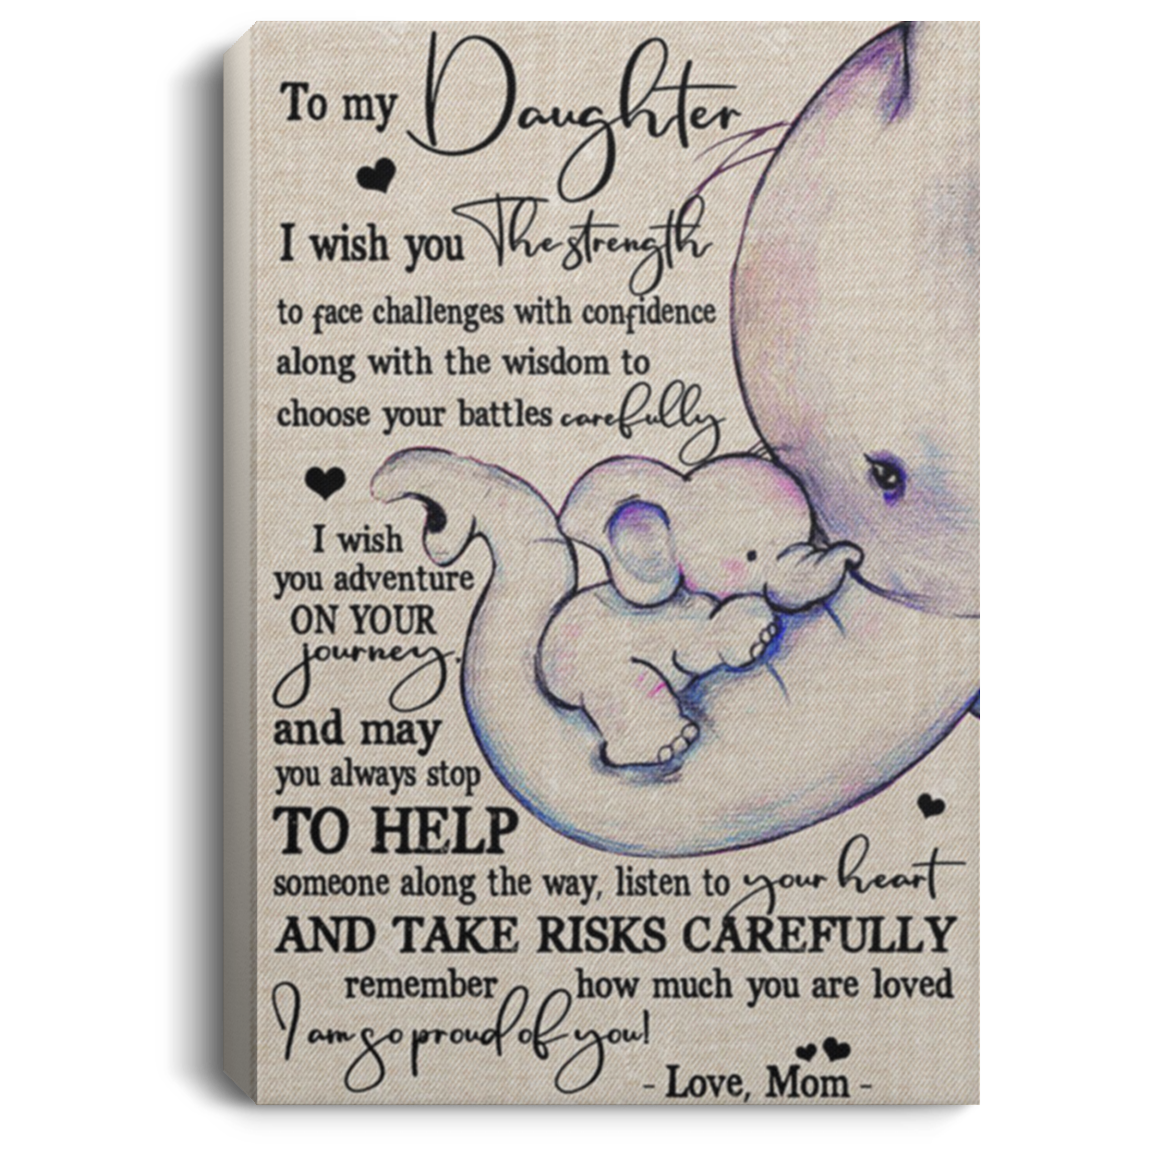 To my Daughter
I wish you The strength
to face challenges with confidence
along with the wisdom to
choose your battles carefully
I wish
you adventure
ON YOUR
journey.
and may
you always stop
TO HELP
someone along the way, listen to your heart
AND TAKE RISKS CAREFULLY
remember how much you are loved
I am so proud of you!
- Love, Mom -